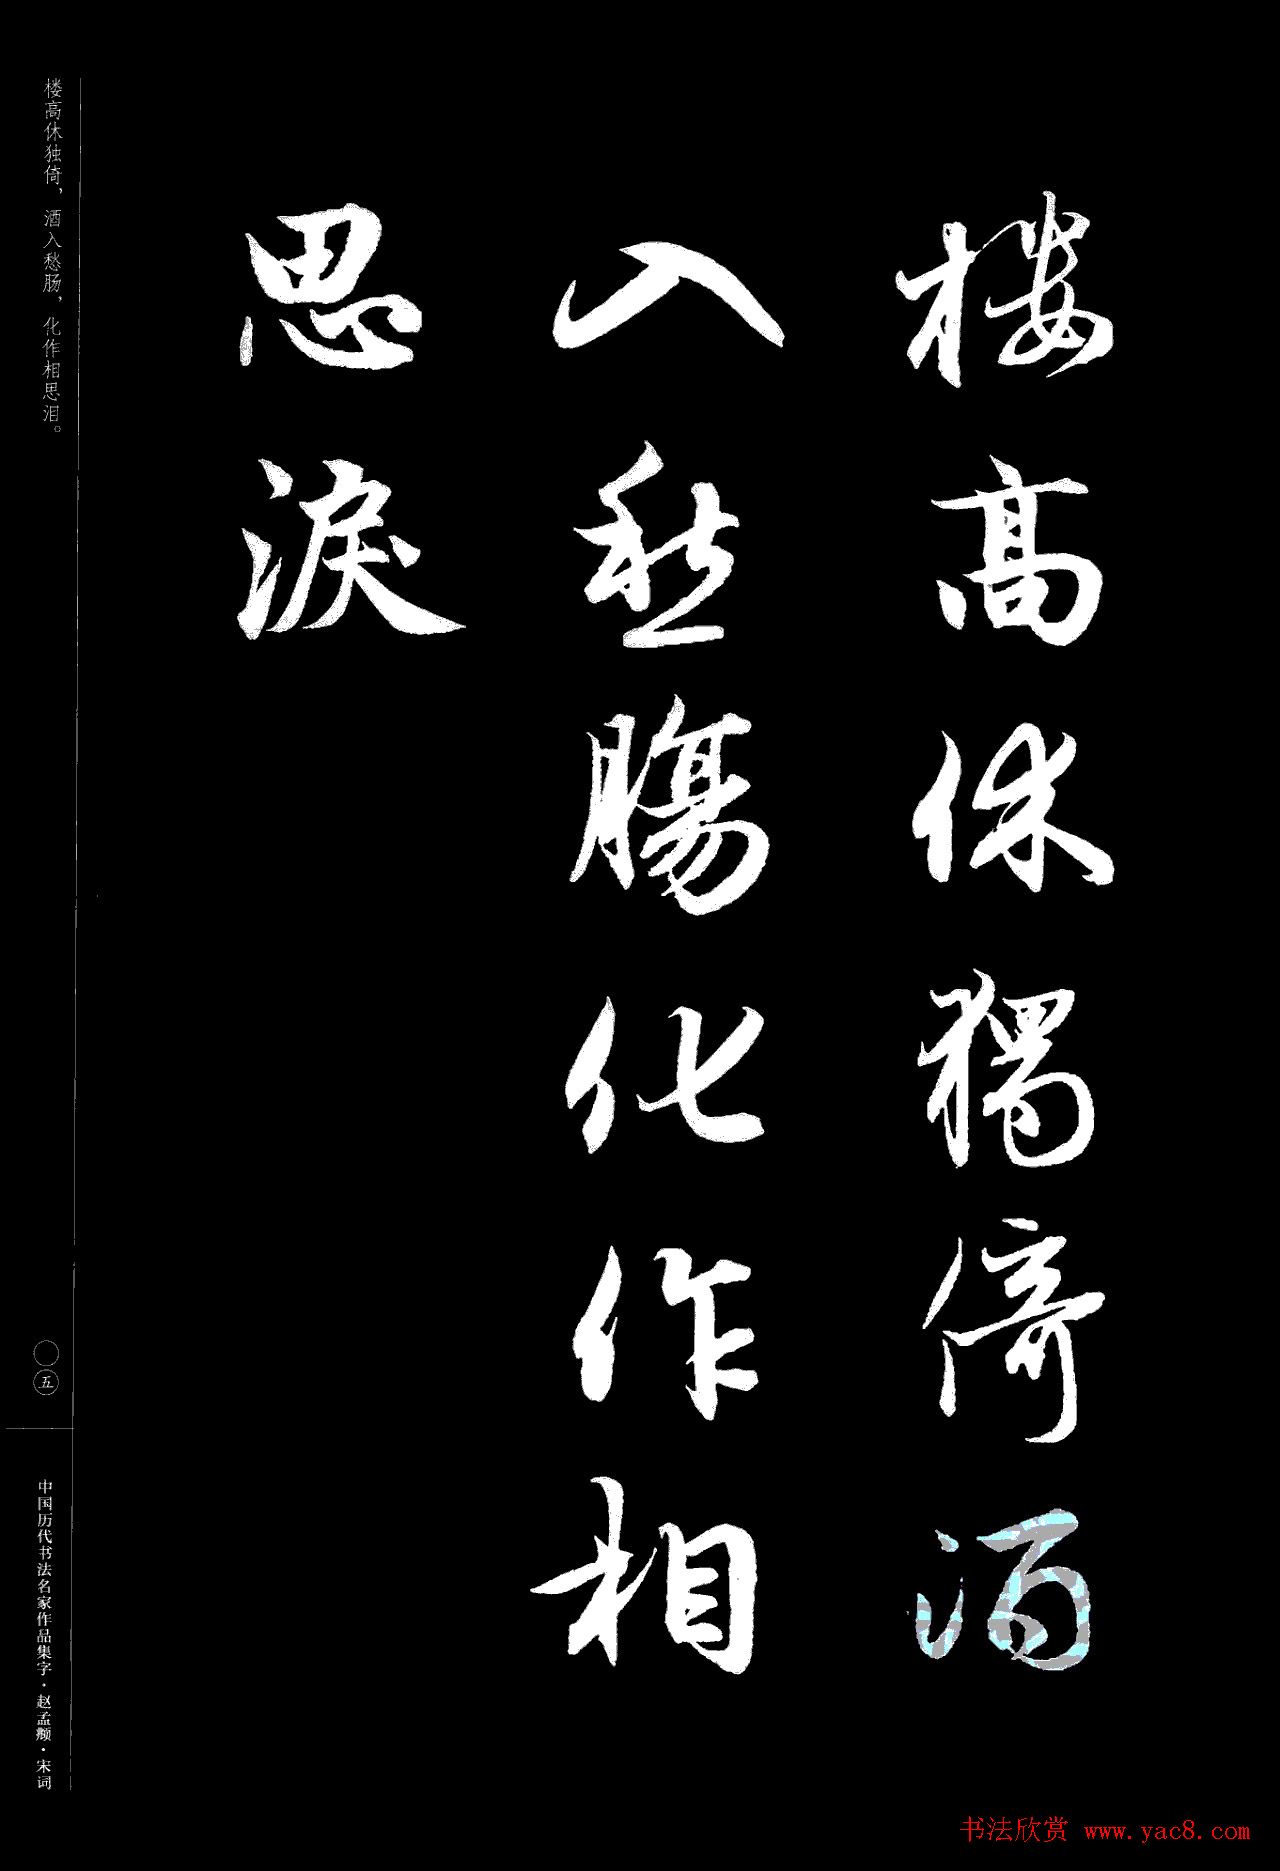 樓高休獨倚酒
入愁腸化作相
思淚
楼高休独倚，酒入愁肠，化作相思泪。
〇五
中国历代书法名家作品集字·赵孟頫·宋词
书法欣赏 www.yac8.com